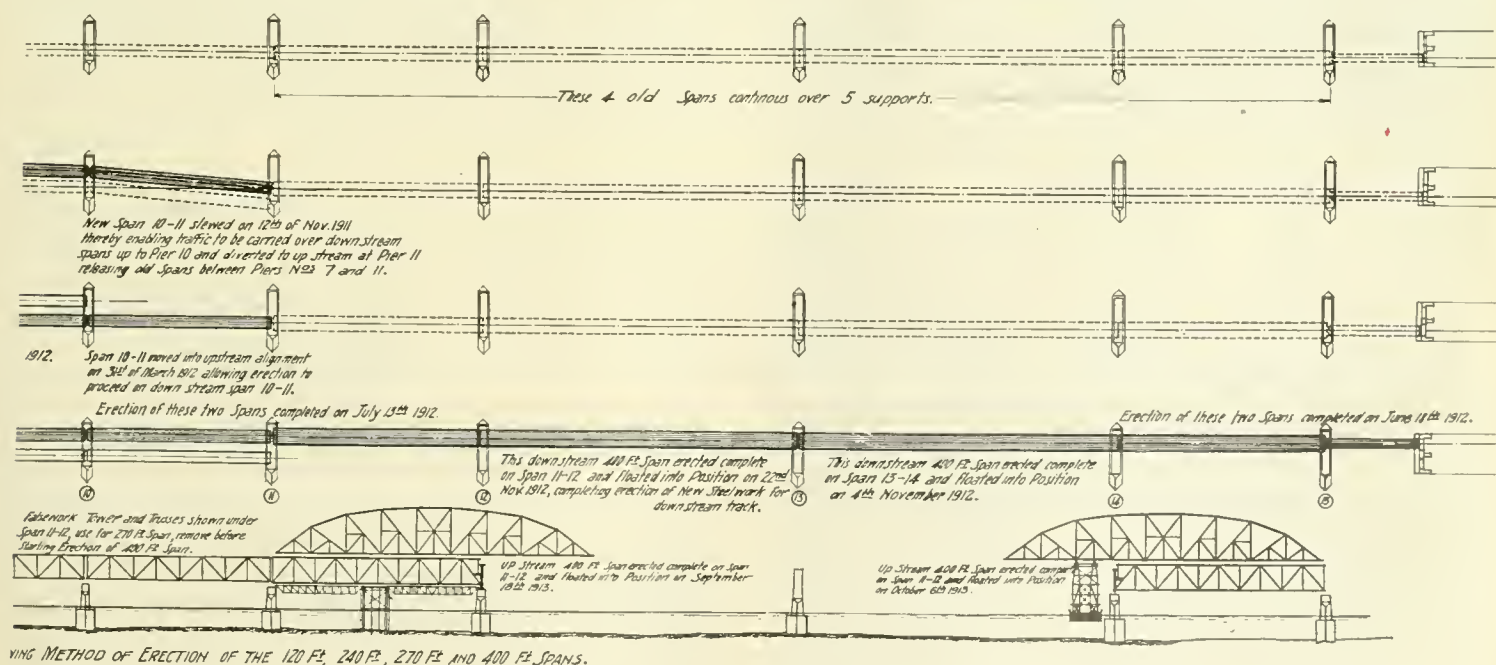 These 4 old Spans continous over 5 supports.
New Span 10-11 slewed on 12th of Nov. 1911
thereby enabling traffic to be carried over downstream
spans up to Pier 10 and diverted to up stream at Pier 11
releasing old Spans between Piers Nos 7 and 11.
1912.
Span 10-11 moved into upstream alignment
on 31st of March 1912 allowing erection to
proceed on down stream span 10-11.
Erection of these two Spans completed on July 13th 1912.
Erection of these two Spans completed on June 18th 1912.
This downstream 400 Ft Span erected complete
on Span 11-12 and floated into Position on 22nd
Nov. 1912, completing erection of New Steelwork for
downstream track.
This downstream 400 Ft Span erected complete
on Span 13-14 and floated into Position
on 4th November 1912.
10
11
12
13
14
15
Falsework Tower and Trusses shown under
Span 11-12, use for 270 Ft Span, remove before
starting Erection of 400 Ft Span.
UP Stream 400 Ft Span erected complete on Span
11-12 and floated into Position on September
18th 1913.
Up Stream 400 Ft Span erected complete
on Span 11-12 and floated into Position
on October 6th 1913.
VING METHOD OF ERECTION OF THE 120 Ft, 240 Ft, 270 Ft AND 400 Ft SPANS.